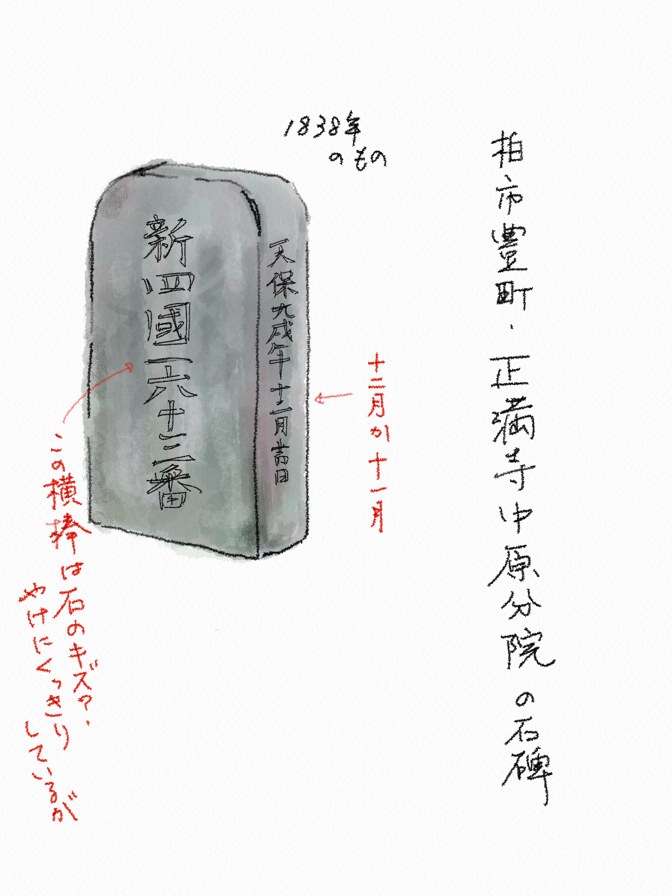 柏市豊町・正満寺中原分院の石碑
1838年
のもの
天保九戌年十二月吉日
新四國一六十三番
十二月か十一月
この横棒は石のキズ?、
やけにくっきり
しているが